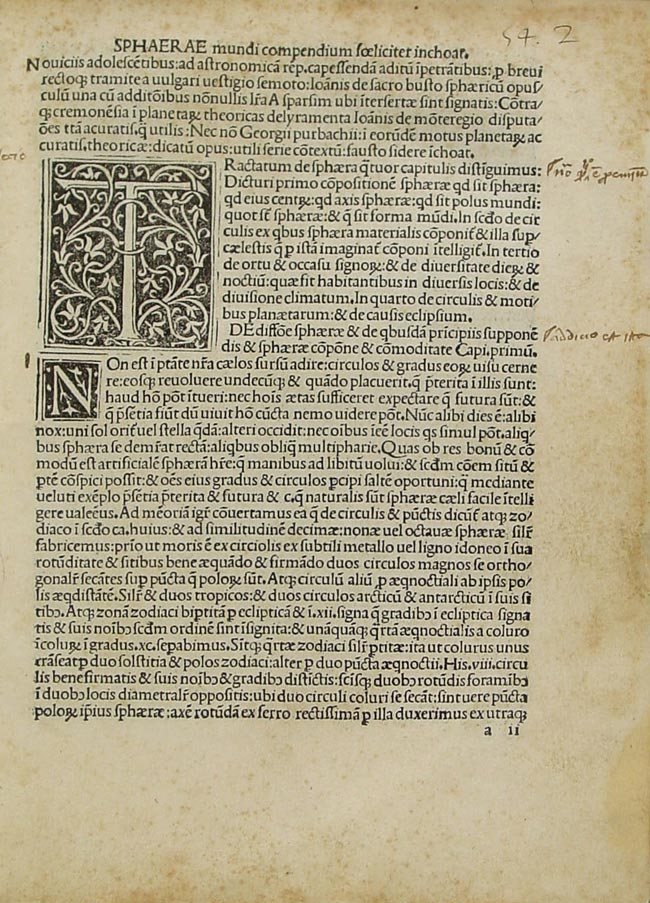 57. 2
SPHAERAE mundi compendium fœliciter inchoat.
Nouiciis adolescẽtibus:ad astronomicã rẽp.capessendã aditũ ĩpetrãtibus:ꝑ breui
rectoqꝫ tramite a uulgari uestigio semoto:Ioãnis de sacro busto sphæricũ opus/
culũ una cũ additiõibus nõnullis lr̃a A sparsim ubi ĩtersertæ sint signatis:Cõtra/
qꝫ cremonẽsia ĩ planetaꝝ theoricas delyramenta Ioãnis de mõteregio disputa/
ões ttã acuratis.q̃ utilis:Nec nõ Georgii purbachii:ĩ eorũdẽ motus planetaꝝ ac
curatis.theoricæ:dicatũ opus:utili serie cõtextũ:fausto sidere ĩchoat.
TRactatum de sphæra q̃tuor capitulis distĩguimus:
Dicturi primo cõpositionẽ sphæræ qd sit sphæra:
qd eius centꝝ:qd axis sphæræ:qd sit polus mundi:
quot sĩt sphæræ:& q̃ sit forma mũdi.In scđo de cir
culis ex qbus sphæra materialis cõponit̃ & illa sup/
cælestis q̃ ꝑ istã imaginat̃ cõponi ĩtelligit̃.In tertio
de ortu & occasu signoꝝ:& de diuersitate dieꝝ &
noctiũ:quæ fit habitantibus in diuersis locis:& de
diuisione climatum.In quarto de circulis & moti/
bus planætarum:& de causis eclipsium.
DE diffõe sphæræ & de qbusdã prĩcipiis supponẽ
dis & sphæræ cõpõne & cõmoditate Capi.primũ.
NOn est ĩ ptãte nr̃a cælos sursũ adire:circulos & gradus eoꝝ uisu cerne
re:eosqꝫ reuoluere undecũqꝫ & quãdo placuerit.q̃ p̃terita ĩ illis sunt:
haud hõ põt ĩtueri:nec hoĩs ætas sufficeret expectare q̃ futura sũt:&
q̃ p̃sẽtia fiũt dũ uiuit hõ cũcta nemo uidere põt.Nũc alibi dies ẽ:alibi
nox:uni sol orit̃ uel stella qdã:alteri occidit:nec oĩbus ĩcẽ locis qs simul põt.aliq/
bus sphæra se demr̃at rectã:aliqbus obliq̃ multipharie.Quas ob res bonũ & cõ
modũ est artificialẽ sphærã hr̃e:q̃ manibus ad libitũ uolui:& scđm cõem sitũ &
ptẽ cõspici possit:& oẽs eius gradus & circulos ꝑcipi saltẽ oportuni:q̃ mediante
ueluti exẽplo p̃sẽtia p̃terita & futura & c.q̃ naturalis sũt sphæræ cæli facile ĩtelli
gere ualeẽus.Ad mẽoriã igr̃ cõuertamus ea q̃ de circulis & pũctis dicũt̃ atqꝫ zo/
diaco ĩ scđo ca.huius:& ad similitudinẽ decimæ:nonæ uel octauæ sphæræ silr̃
fabricemus:prĩo ut moris ẽ ex circiolis ex subtili metallo uel ligno idoneo ĩ sua
rotũditate & sitibus bene æquãdo & firmãdo duos circulos magnos se ortho/
gonalr̃ secãtes sup pũcta q̃ poloꝝ sũt.Atqꝫ circulũ aliũ ꝑ æqnoctiali ab ipsis po/
sis æqdistãtẽ.Silr̃ & duos tropicos:& duos circulos arcticũ & antarcticũ ĩ suis si
tibꝫ.Atqꝫ zonã zodiaci biptitã ꝑ eclipticã & ĩ.xii.signa q̃ gradibꝫ ĩ ecliptica signa
tis & suis noĩbꝫ scđm ordinẽ sint ĩsignita:& unãquãqꝫ q̃rtã æqnoctialis a coluro
ĩ coluꝝ ĩ gradus.xc.sepabimus.Sitqꝫ q̃rtæ zodiaci silr̃ ptitæ:ita ut colurus unus
trãseat ꝑ duo solstitia & polos zodiaci:alter ꝑ duo pũcta æqnoctii.His.viii.circu
lis bene firmatis & suis noĩbꝫ & gradibꝫ distĩctis:scĩsqꝫ duobꝫ rotũdis foramĩbꝫ
ĩ duobꝫ locis diametralr̃ oppositis:ubi duo circuli coluri se secãt:sintuere pũcta
poloꝝ ip̃ius sphæræ:axẽ rotũdã ex ferro rectissimã ꝑ illa duxerimus ex utraqꝫ
a ii